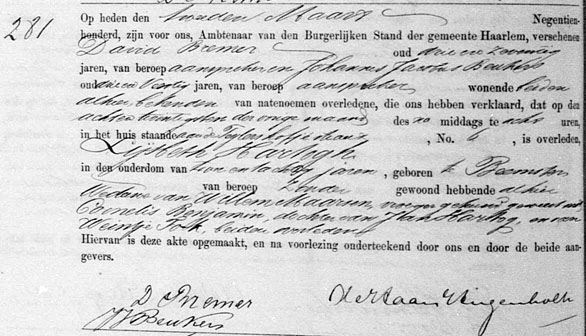 281
Op heden den tweeden Maart Negentien-
honderd, zijn voor ons, Ambtenaar van den Burgerlijken Stand der gemeente Haarlem, verschenen
David Bremer oud drie en zeventig
jaren, van beroep aanspreker en Johannes Jacobus Beukers
oud drie en veertig jaren, van beroep aanspreker wonende beiden
alhier bekenden van natenoemen overledene, die ons hebben verklaard, dat op den
achten twintigsten der vorige maand des na middags te acht uren,
in het huis staande aan de Teylers hofje straat, No. 4, is overleden,
Lijsbeth Hartog
in den ouderdom van en tachtig jaren, geboren te Beemster
van beroep zonder gewoond hebbende alhier
Weduwe van Willem vroeger gehuwd geweest met
Cornelis Benjamin, dochter van Jan Hartog, en van
Weintje beiden overleden
Hiervan is deze akte opgemaakt, en na voorlezing onderteekend door ons en door de beide aan-
gevers.
D Bremer
JJ Beukers